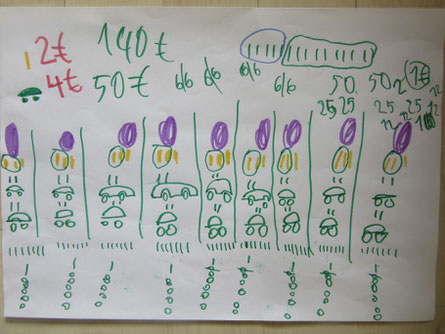 2€ 140€
4€ 50€ 6/6 6/6 6/6 6/6 50 50 1€
25 25 25 25
12 12 12